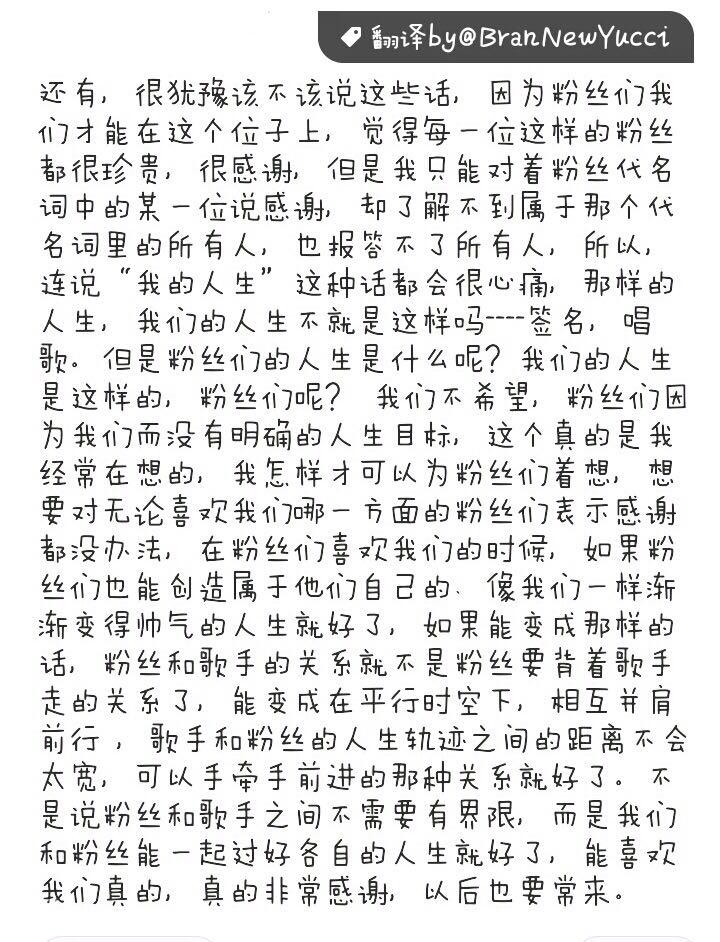 翻译by@BranNewYucci
还有, 很犹豫该不该说这些话, 因为粉丝们我
们才能在这个位子上, 觉得每一位这样的粉丝
都很珍贵, 很感谢, 但是我只能对着粉丝代名
词中的某一位说感谢, 却了解不到属于那个代
名词里的所有人, 也报答不了所有人, 所以,
连说“我的人生”这种话都会很心痛, 那样的
人生, 我们的人生不就是这样吗----签名, 唱
歌。但是粉丝们的人生是什么呢? 我们的人生
是这样的, 粉丝们呢? 我们不希望, 粉丝们因
为我们而没有明确的人生目标, 这个真的是我
经常在想的, 我怎样才可以为粉丝们着想, 想
要对无论喜欢我们哪一方面的粉丝们表示感谢
都没办法, 在粉丝们喜欢我们的时候, 如果粉
丝们也能创造属于他们自己的、像我们一样渐
渐变得帅气的人生就好了, 如果能变成那样的
话, 粉丝和歌手的关系就不是粉丝要背着歌手
走的关系了, 能变成在平行时空下, 相互并肩
前行, 歌手和粉丝的人生轨迹之间的距离不会
太宽, 可以手牵手前进的那种关系就好了。不
是说粉丝和歌手之间不需要有界限, 而是我们
和粉丝能一起过好各自的人生就好了, 能喜欢
我们真的, 真的非常感谢, 以后也要常来。